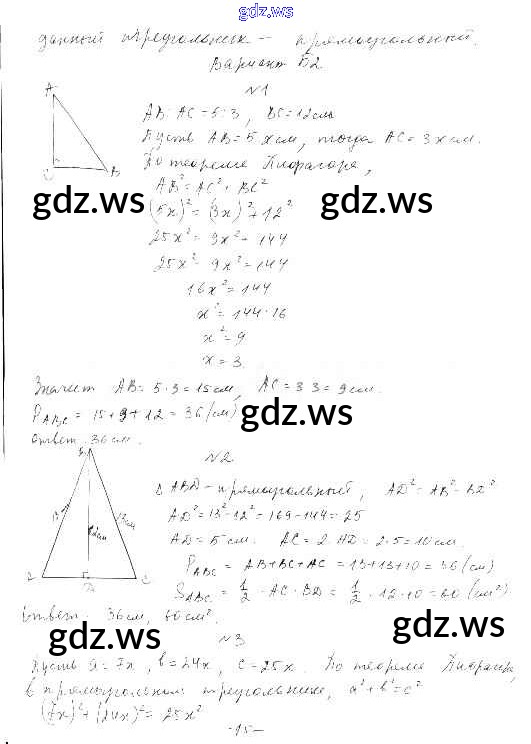 gdz.ws
данный треугольник – прямоугольный.
Вариант Б2
N1
A
C
B
AB:AC = 5:3, BC = 12см
Пусть AB = 5x см, тогда AC = 3x см.
По теореме Пифагора,
AB² = AC² + BC²
gdz.ws
gdz.ws
(5x)² = (3x)² + 12²
25x² = 9x² + 144
25x² - 9x² = 144
16x² = 144
x² = 144:16
x² = 9
x = 3.
Значит AB = 5·3 = 15см, AC = 3·3 = 9см.
P ABC = 15 + 9 + 12 = 36 (см)
gdz.ws
Ответ: 36см.
N2
B
13
12см
13см
D
C
Δ ABD – прямоугольный, AD² = AB² - BD²
AD² = 13² - 12² = 169 - 144 = 25
AD = 5см. AC = 2·AD = 2·5 = 10см.
P ABC = AB + BC + AC = 13 + 13 + 10 = 36 (см)
S ABC = 1/2 · AC · BD = 1/2 · 12·10 = 60 (см²)
Ответ: 36см, 60см².
gdz.ws
gdz.ws
N3
Пусть a = 7x, b = 24x, c = 25x. По теореме Пифагора,
в прямоугольном треугольнике, a² + b² = c²
(7x)² + (24x)² = 25x²
-15-